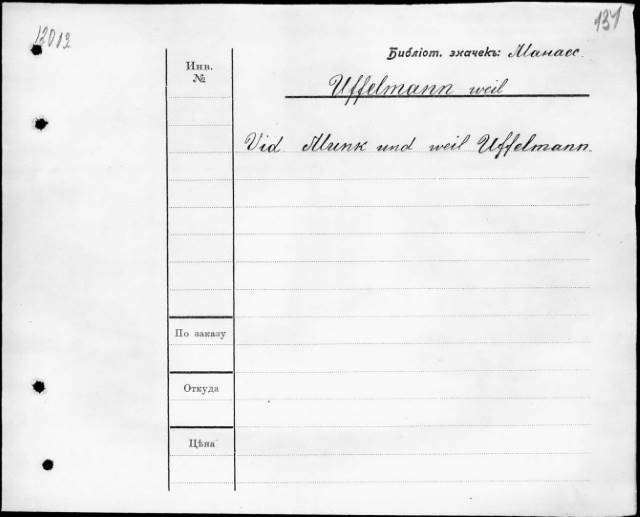 12012
131
Библіот. значекъ: Манасс.
Инв.
№
Uffelmann weil
Vid Munk und weil Uffelmann.
По заказу
Откуда
Цѣна